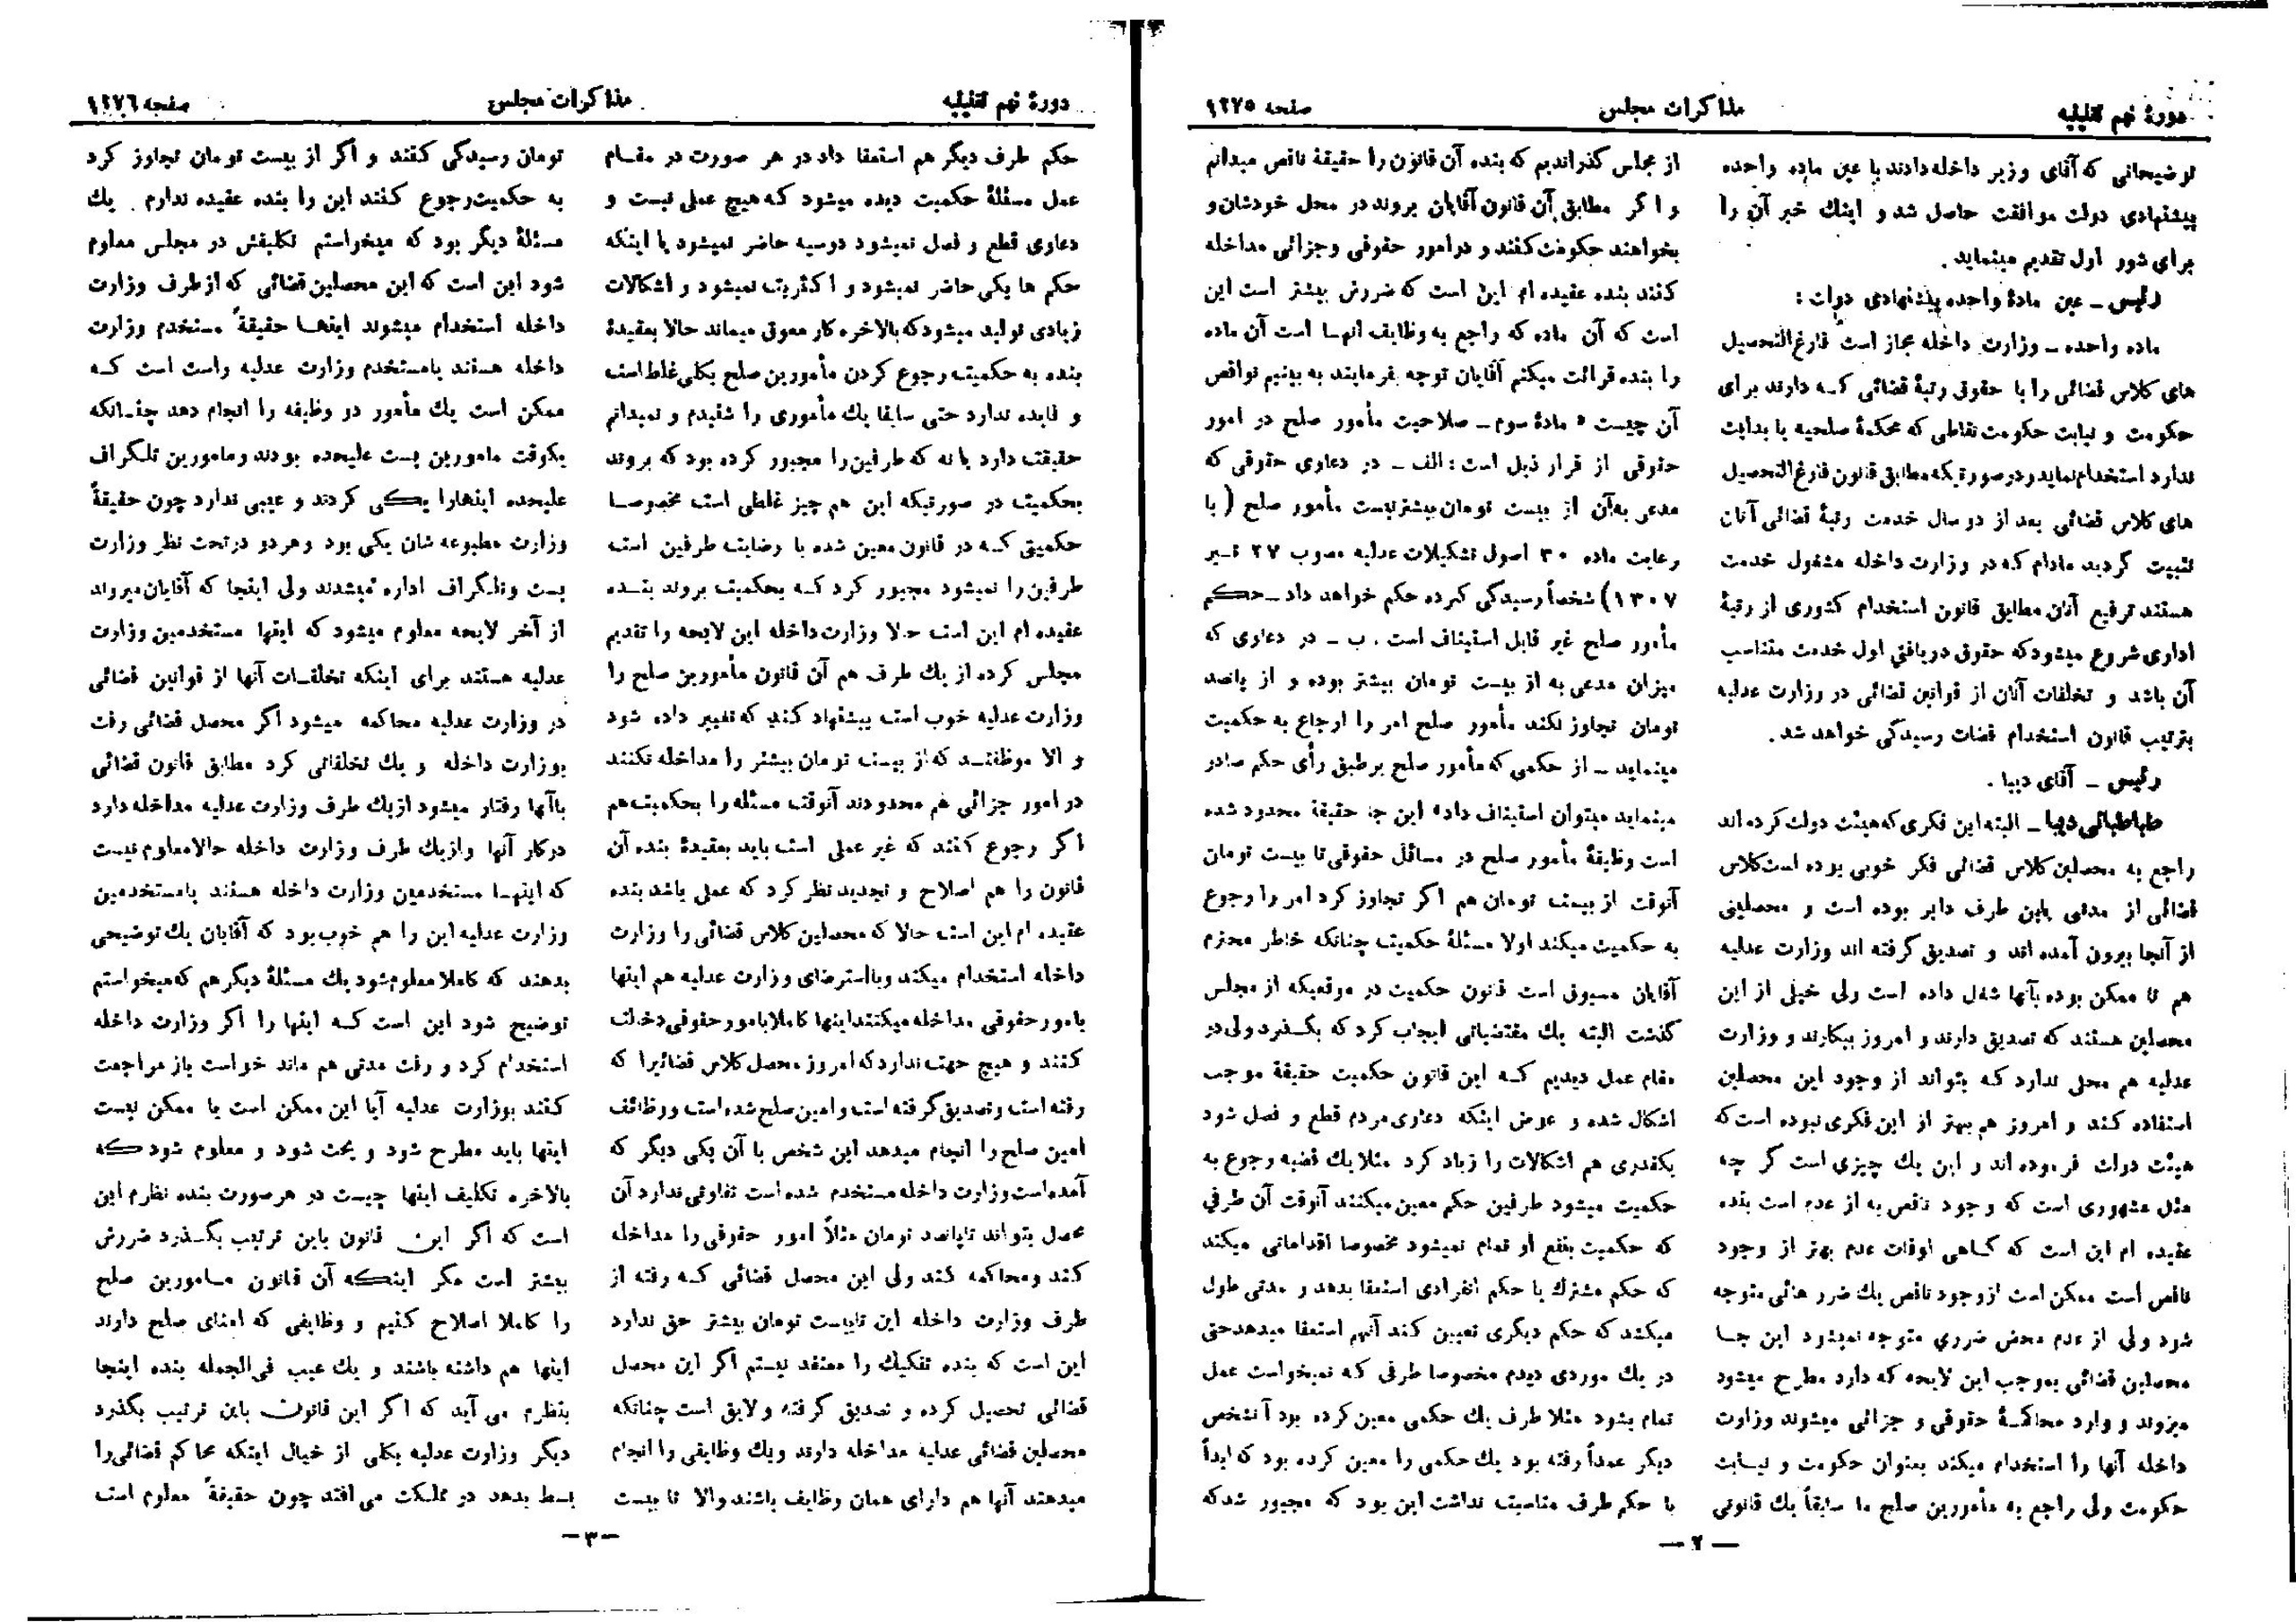 دورهٔ نهم تقنینیه
مذاکرات مجلس
صفحه ۱۲۷۵
توضیحاتی که آقای وزیر داخله دادند با عین ماده واحده
پیشنهادی دولت موافقت حاصل شد و اینك خبر آن را
برای شور اول تقدیم مینماید.
رئیس ـ عین مادهٔ واحده پیشنهادی دولت:
ماده واحده ـ وزارت داخله مجاز است فارغ‌التحصیل
های کلاس قضائی را با حقوق رتبهٔ قضائی کـه دارند برای
حکومت و نیابت حکومت نقاطی که محکمهٔ صلحیه یا بدایت
ندارد استخدام نماید و در صورتیکه مطابق قانون فارغ‌التحصیل
های کلاس قضائی بعد از دو سال خدمت رتبهٔ قضائی آنان
تثبیت گردید مادام که در وزارت داخله مشغول خدمت
هستند ترفیع آنان مطابق قانون استخدام کشوری از رتبهٔ
اداری شروع میشود که حقوق دریافتی اول خدمت متناسب
آن باشد و تخلفات آنان از قوانین قضائی در وزارت عدلیه
بترتیب قانون استخدام قضات رسیدگی خواهد شد.
رئیس ـ آقای دیبا.
طباطبائی دیبا ـ البته این فکری که هیئت دولت کرده‌اند
راجع به محصلین کلاس قضائی فکر خوبی بوده است کلاس
قضائی از مدتی باین طرف دایر بوده است و محصلینی
از آنجا بیرون آمده اند و تصدیق گرفته اند وزارت عدلیه
هم تا ممکن بوده بآنها شغل داده است ولی خیلی از این
محصلین هستند که تصدیق دارند و امروز بیکارند و وزارت
عدلیه هم محلی ندارد کـه بتواند از وجود این محصلین
استفاده کند و امروز هم بهتر از این فکری نبوده است که
هیئت دولت فرموده اند و این یك چیزی است گر چه
مثل مشهوری است که وجود ناقص به از عدم است بنده
عقیده ام این است که گـاهی اوقات عدم بهتر از وجود
ناقص است ممکن است از وجود ناقص یك ضرر هائی متوجه
شود ولی از عدم محض ضرری متوجه نمیشود این جـا
محصلین قضائی بموجب این لایحه که دارد مطرح میشود
میروند و وارد محاکمهٔ حقوقی و جزائی میشوند وزارت
داخله آنها را استخدام میکند بعنوان حکومت و نیـابت
حکومت ولی راجع به مأمورین صلح ما سابقاً یك قانونی
از مجلس گذراندیم که بنده آن قانون را حقیقة ناقص میدانم
و اگر مطابق آن قانون آقایان بروند در محل خودشان و
بخواهند حکومت کنند و در امور حقوقی و جزائی مداخله
کنند بنده عقیده ام این است که ضررش بیشتر است این
است که آن ماده که راجع به وظایف آنهـا است آن ماده
را بنده قرائت میکنم آقایان توجه بفرمایند به بینیم نواقص
آن چیست « مادهٔ سوم ـ صلاحیت مأمور صلح در امور
حقوقی از قرار ذیل است: الف ـ در دعاوی حقوقی که
مدعی به‌آن از بیست تومان بیشتر نیست مأمور صلح (با
رعایت ماده ۳۰ اصول تشکیلات عدلیه مصوب ۲۷ تیر
۱۳۰۷) شخصاً رسیدگی کرده حکم خواهد داد ـ حکم
مأمور صلح غیر قابل استیناف است. ب ـ در دعاوی که
میزان مدعی به از بیست تومان بیشتر بوده و از پانصد
تومان تجاوز نکند مأمور صلح امر را ارجاع به حکمیت
مینماید ـ از حکمی که مأمور صلح بر طبق رأی حکم صادر
مینماید میتوان استیناف داد» این جا حقیقة محدود شده
است وظیفهٔ مأمور صلح در مسائل حقوقی تا بیست تومان
آنوقت از بیست تومان هم اگر تجاوز کرد امر را رجوع
به حکمیت میکند اولا مسئلهٔ حکمیت چنانکه خاطر محترم
آقایان مسبوق است قانون حکمیت در موقعیکه از مجلس
گذشت البته یك مقتضیاتی ایجاب کرد که بگـذرد ولی در
مقام عمل دیدیم کـه این قانون حکمیت حقیقة موجب
اشکال شده و عوض اینکه دعاوی مردم قطع و فصل شود
یکقدری هم اشکالات را زیاد کرد مثلا یك قضیه رجوع به
حکمیت میشود طرفین حکم معین میکنند آنوقت آن طرفی
که حکمیت بنفع او تمام نمیشود مخصوصا اقداماتی میکند
که حکم مشترك یا حکم انفرادی استعفا بدهد و مدتی طول
میکشد که حکم دیگری تعیین کند آنهم استعفا میدهد حتی
در یك موردی دیدم مخصوصا طرفی کـه نمیخواست عمل
تمام بشود مثلا طرف یك حکمی معین کرده بود آنشخص
دیگر عمداً رفته بود یك حکمی را معین کرده بود که ابداً
با حکم طرف مناسبت نداشت این بود که مجبور شد که
ـ ۲ ـ
دورهٔ نهم تقنینیه
مذاکرات مجلس
صفحه ۱۲۷۶
حکم طرف دیگر هم استعفا داد در هر صورت در مقـام
عمل مسئلهٔ حکمیت دیده میشود که هیچ عملی نیست و
دعاوی قطع و فصل نمیشود دوسیه حاضر نمیشود یا اینکه
حکم ها یکی حاضر نمیشود و اکثریت نمیشود و اشکالات
زیادی تولید میشود که بالاخره کار معوق میماند حالا بعقیدهٔ
بنده به حکمیت رجوع کردن مأمورین صلح بکلی غلط است
و فایده ندارد حتی سابقا یك مأموری را شنیدم و نمیدانم
حقیقت دارد یا نه که طرفین را مجبور کرده بود که بروند
بحکمیت در صورتیکه این هم چیز غلطی است مخصوصـا
حکمیتی کـه در قانون معین شده با رضایت طرفین است
طرفین را نمیشود مجبور کرد کـه بحکمیت بروند بنـده
عقیده ام این است حالا وزارت داخله این لایحه را تقدیم
مجلس کرده از یك طرف هم آن قانون مأمورین صلح را
وزارت عدلیه خوب است پیشنهاد کند که تغییر داده شود
و الا موظفنـد که از بیست تومان بیشتر را مداخله نکنند
در امور جزائی هم محدودند آنوقت مسئله را بحکمیت هم
اگر رجوع کنند که غیر عملی است باید بعقیدهٔ بنده آن
قانون را هم اصلاح و تجدید نظر کرد که عملی باشد بنده
عقیده ام این است حالا که محصلین کلاس قضائی را وزارت
داخله استخدام میکند و با استرضای وزارت عدلیه هم اینها
بامور حقوقی مداخله میکنند اینها کاملا بامور حقوقی دخالت
کنند و هیچ جهت ندارد که امروز محصل کلاس قضائیرا که
رفته است و تصدیق گرفته است و امین صلح شده است و وظائف
امین صلح را انجام میدهد این شخص با آن یکی دیگر که
آمده است وزارت داخله مستخدم شده است تفاوتی ندارد آن
محصل بتواند تا پانصد تومان مثلاً امور حقوقی را مداخله
کند و محاکمه کند ولی این محصل قضائی کـه رفته از
طرف وزارت داخله این تا بیست تومان بیشتر حق ندارد
این است که بنده تفکیك را معتقد نیستم اگر این محصل
قضائی تحصیل کرده و تصدیق گرفته و لایق است چنانکه
محصلین قضائی عدلیه مداخله دارند و یك وظایفی را انجام
میدهند آنها هم دارای همان وظایف باشند والا تا بیست
تومان رسیدگی کنند و اگر از بیست تومان تجاوز کرد
به حکمیت رجوع کنند این را بنده عقیده ندارم. یك
مسئلهٔ دیگر بود که میخواستم تکلیفش در مجلس معلوم
شود این است که این محصلین قضائی که از طرف وزارت
داخله استخدام میشوند اینهـا حقیقةً مستخدم وزارت
داخله هستند یا مستخدم وزارت عدلیه راست است کـه
ممکن است یك مأمور دو وظیفه را انجام دهد چنـانکه
یکوقت مامورین پست علیحده بودند و مامورین تلگراف
علیحده اینهارا یکی کردند و عیبی ندارد چون حقیقةً
وزارت مطبوعه شان یکی بود و هر دو در تحت نظر وزارت
پست و تلگراف اداره میشدند ولی اینجا که آقایان میروند
از آخر لایحه معلوم میشود که اینها مستخدمین وزارت
عدلیه هستند برای اینکه تخلفـات آنها از قوانین قضائی
در وزارت عدلیه محاکمه میشود اگر محصل قضائی رفت
بوزارت داخله و یك تخلفاتی کرد مطابق قانون قضائی
باآنها رفتار میشود از یك طرف وزارت عدلیه مداخله دارد
درکار آنها و از یك طرف وزارت داخله حالا معلوم نیست
که اینهـا مستخدمین وزارت داخله هستند یا مستخدمین
وزارت عدلیه این را هم خوب بود که آقایان یك توضیحی
بدهند که کاملا معلوم شود یك مسئلهٔ دیگر هم که میخواستم
توضیح شود این است کـه اینها را اگر وزارت داخله
استخدام کرد و رفت مدتی هم ماند خواست باز مراجعت
کنند بوزارت عدلیه آیا این ممکن است یا ممکن نیست
اینها باید مطرح شود و بحث شود و معلوم شود که
بالاخره تکلیف اینها چیست در هر صورت بنده نظرم این
است که اگر این قانون باین ترتیب بگـذرد ضررش
بیشتر است مگر اینکه آن قانون مـامورین صلح
را کاملا اصلاح کنیم و وظایفی که امنای صلح دارند
اینها هم داشته باشند و یك عیب فی‌الجمله بنده اینجا
بنظرم می آید که اگر این قانون باین ترتیب بگذرد
دیگر وزارت عدلیه بکلی از خیال اینکه محاکم قضائی را
بسط بدهد در مملکت می افتد چون حقیقةً معلوم است
ـ۳ـ